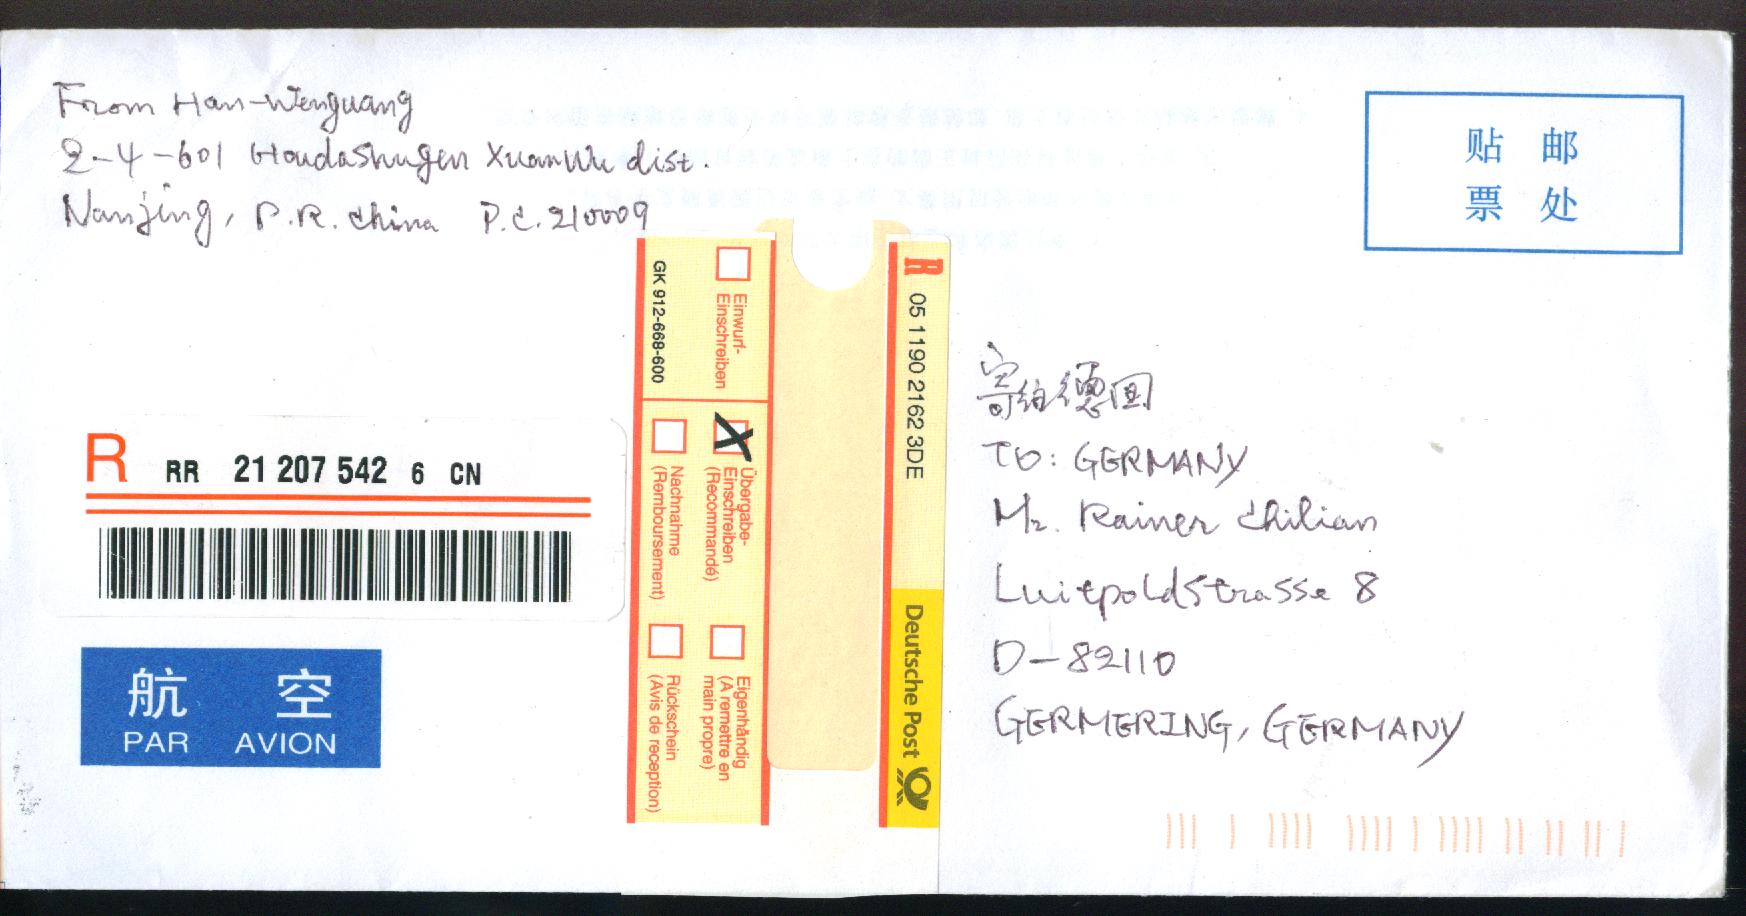 From Han-Wenguang
2-4-601 HoudaShugen XuanWu dist.
Nanjing, P.R. China P.C. 210009
贴 邮
票 处
R RR 21 207 542 6 CN
航 空
PAR AVION
GK 912-668-600
Einwurf-
Einschreiben
Übergabe-
Einschreiben
(Recommandé)
Nachnahme
(Remboursement)
Eigenhändig
(A remettre en
main propre)
Rückschein
(Avis de reception)
R 05 1190 2162 3DE
Deutsche Post
寄给德国
TO: GERMANY
Mr. Rainer Chilian
Luitpoldstrasse 8
D-82110
GERMERING, GERMANY